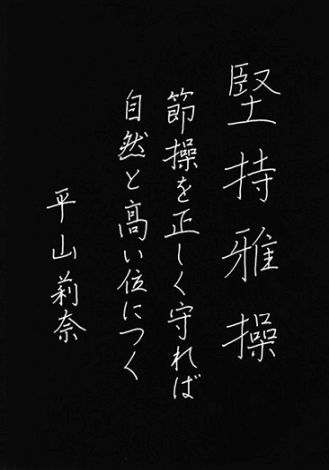 堅持雅操
節操を正しく守れば
自然と高い位につく
平山莉奈